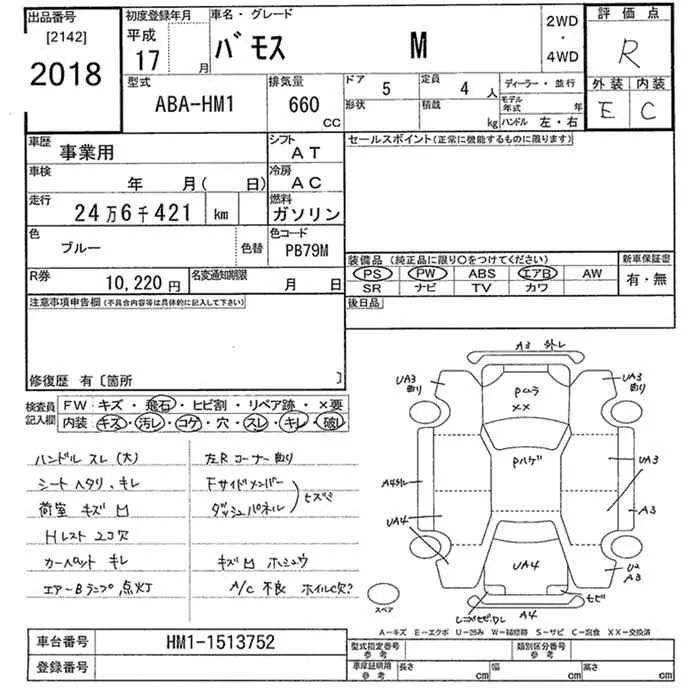 出品番号
[2142]
2018
初度登録年月
平成
17 月
車名・グレード
バモス M
2WD
・
4WD
評価点
R
外装 内装
E C
型式
ABA-HM1
排気量
660
CC
ドア 5
定員 4 人
形状
積載 kg
ディーラー・並行
モデル年式 年
ハンドル 左・右
車歴 事業用
シフト AT
車検 年 月( 日)
冷房 AC
走行 24万6千421 km
燃料 ガソリン
色 ブルー 色替
色コード PB79M
R券 10,220円
名変通知期限 月 日
セールスポイント(正常に機能するものに限ります)
装備品 (純正品に限り○をつけてください)
PS PW ABS エアB AW
SR ナビ TV カワ
新車保証書
有・無
後日品
注意事項申告欄(不具合内容等は具体的に記入して下さい)
修復歴 有〔箇所 〕
検査員記入欄
FW キズ・飛石・ヒビ割・リペア跡・×要
内装 キズ・汚レ・コゲ・穴・スレ・キレ・破レ
ハンドル スレ (大)
シート ヘタリ、キレ
荷室 キズ凹
Hレスト 2コ欠
カーペット キレ
エアーBランプ点灯
左Rコーナー曲り
Fサイドメンバー
ダッシュパネル
キズ凹 ホシュウ
A/C 不良 ホイルC欠?
A3 外レ
UA3
曲り
Pムラ
××
UA3
曲り
Pハゲ
UA3
A4外レ
A3
UA4
UA4
U2
A3
ヒビ
A4
スペア
A-キズ E-エクボ U-凹み W-補修跡 S-サビ C-腐食 XX-交換済
車台番号 HM1-1513752
登録番号
型式指定番号
参考
類別区分番号
参考
車庫証明用
参考
長さ cm
幅 cm
高さ cm